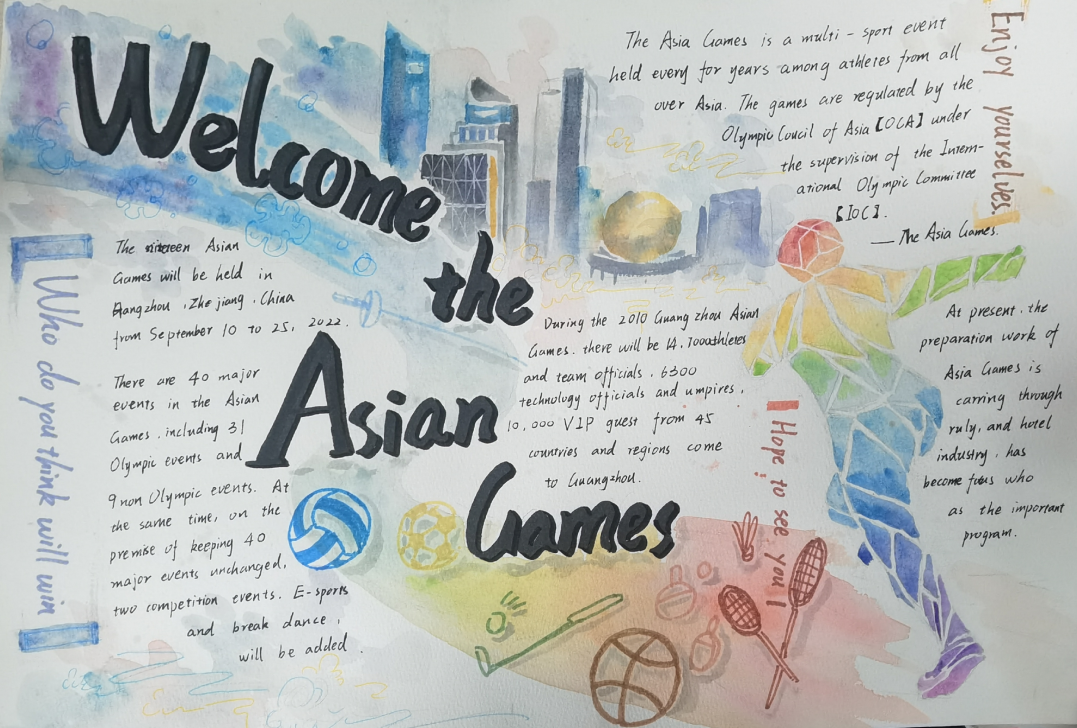 Welcome
the
Asian
Games
The Asia Games is a multi - sport event
held every for years among athletes from all
over Asia. The games are regulared by the
Olympic Coucil of Asia【OCA】under
the supervision of the Intern-
ational Olympic Committee
【IOC】.
— The Asia Games.
Enjoy yourselves.
The nineteen Asian
Games will be held in
Hangzhou , Zhe jiang , China
from September 10 to 25, 2022.
There are 40 major
events in the Asian
Games , including 31
Olympic events and
9 non Olympic events. At
the same time, on the
premise of keeping 40
major events unchanged,
two competition events. E-sports
and break dance,
will be added .
Who do you think will win
During the 2010 Guang zhou Asian
Games. there will be 14,700athletes
and team officials , 6300
technology officials and umpires ,
10,000 VIP guest from 45
countries and regions come
to Guangzhou.
I Hope to see you !
At present , the
preparation work of
Asia Games is
carring through
ruly, and hotel
industry , has
become who
as the important
program.